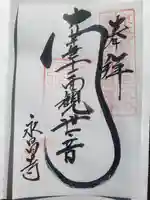 奉拝
南無十一面観世音
永昌寺